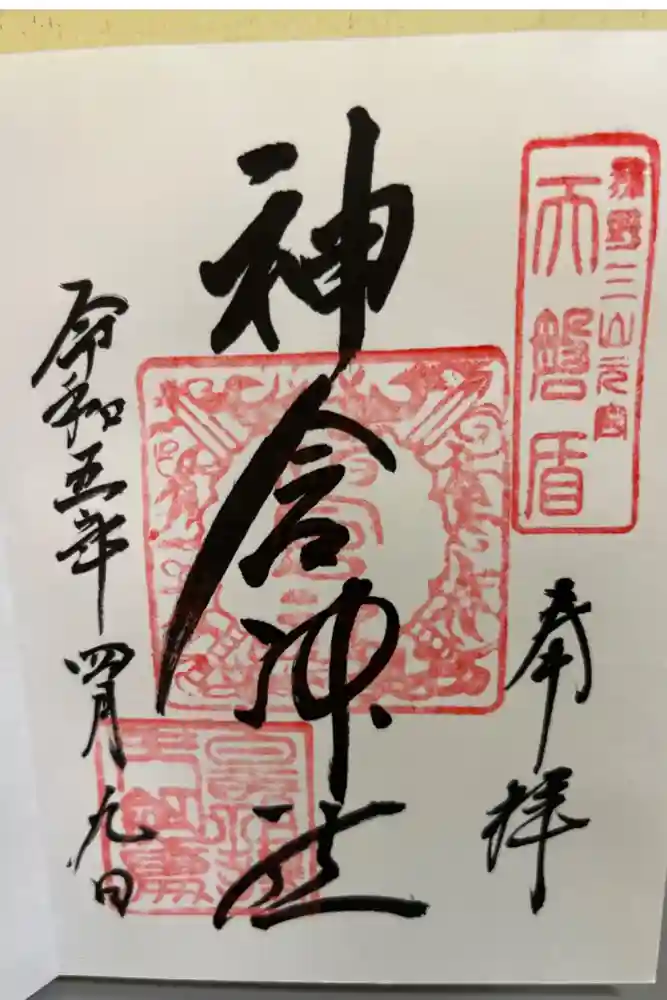 熊野三山元宮
天磐盾
奉拝
神倉神社
令和五年四月九日